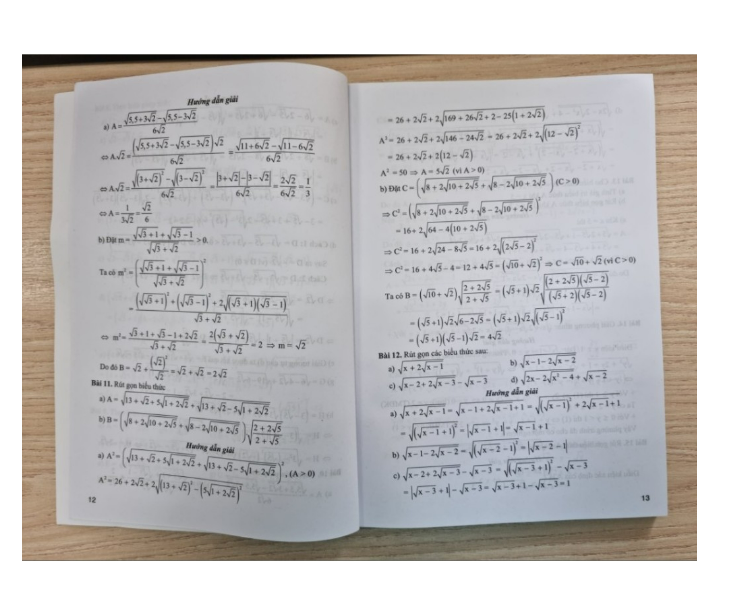 Hướng dẫn giải
a) A = (√(5,5+3√2) − √(5,5−3√2)) / (6√2)
⇔ A√2 = ((√(5,5+3√2) − √(5,5−3√2))√2) / (6√2) = (√(11+6√2) − √(11−6√2)) / (6√2)
⇔ A√2 = (√((3+√2)²) − √((3−√2)²)) / (6√2) = (|3+√2| − |3−√2|) / (6√2) = 2√2 / (6√2) = 1/3
⇔ A = 1/(3√2) = √2/6
b) Đặt m = (√(√3+1) + √(√3−1)) / √(√3+√2) > 0.
Ta có m² = ((√(√3+1) + √(√3−1)) / √(√3+√2))²
= ((√(√3+1))² + (√(√3−1))² + 2√((√3+1)(√3−1))) / (√3+√2)
⇔ m² = (√3+1+√3−1+2√2) / (√3+√2) = 2(√3+√2) / (√3+√2) = 2 ⇒ m = √2
Do đó B = √2 + (√2)²/√2 = √2 + √2 = 2√2
Bài 11. Rút gọn biểu thức
a) A = √(13+√2+5√(1+2√2)) + √(13+√2−5√(1+2√2))
b) B = (√(8+2√(10+2√5)) + √(8−2√(10+2√5))) √((2+2√5)/(2+√5))
Hướng dẫn giải
a) A² = (√(13+√2+5√(1+2√2)) + √(13+√2−5√(1+2√2)))², (A > 0)
A² = 26 + 2√2 + 2√((13+√2)² − (5√(1+2√2))²)
12
= 26 + 2√2 + 2√(169 + 26√2 + 2 − 25(1+2√2))
A² = 26 + 2√2 + 2√(146 − 24√2) = 26 + 2√2 + 2√((12−√2)²)
= 26 + 2√2 + 2(12 − √2)
A² = 50 ⇒ A = 5√2 (vì A > 0)
b) Đặt C = (√(8+2√(10+2√5)) + √(8−2√(10+2√5))) (C > 0)
⇒ C² = (√(8+2√(10+2√5)) + √(8−2√(10+2√5)))²
= 16 + 2√(64 − 4(10+2√5))
⇒ C² = 16 + 2√(24 − 8√5) = 16 + 2√((2√5−2)²)
⇒ C² = 16 + 4√5 − 4 = 12 + 4√5 = (√10 + √2)² ⇒ C = √10 + √2 (vì C > 0)
Ta có B = (√10+√2) √((2+2√5)/(2+√5)) = (√5+1)√2 √(((2+2√5)(√5−2)) / ((√5+2)(√5−2)))
= (√5+1)√2 √(6−2√5) = (√5+1)√2 √((√5−1)²)
= (√5+1)(√5−1)√2 = 4√2
Bài 12. Rút gọn các biểu thức sau:
a) √(x+2√(x−1)) b) √(x−1−2√(x−2))
c) √(x−2+2√(x−3)) − √(x−3) d) √(2x−2√(x²−4)) + √(x−2)
Hướng dẫn giải
a) √(x+2√(x−1)) = √(x−1+2√(x−1)+1) = √((√(x−1))² + 2√(x−1)+1)
= √((√(x−1)+1)²) = |√(x−1)+1| = √(x−1)+1
b) √(x−1−2√(x−2)) = √((√(x−2)−1)²) = |√(x−2)−1|
c) √(x−2+2√(x−3)) − √(x−3) = √((√(x−3)+1)²) − √(x−3)
= |√(x−3)+1| − √(x−3) = √(x−3)+1 − √(x−3) = 1
13